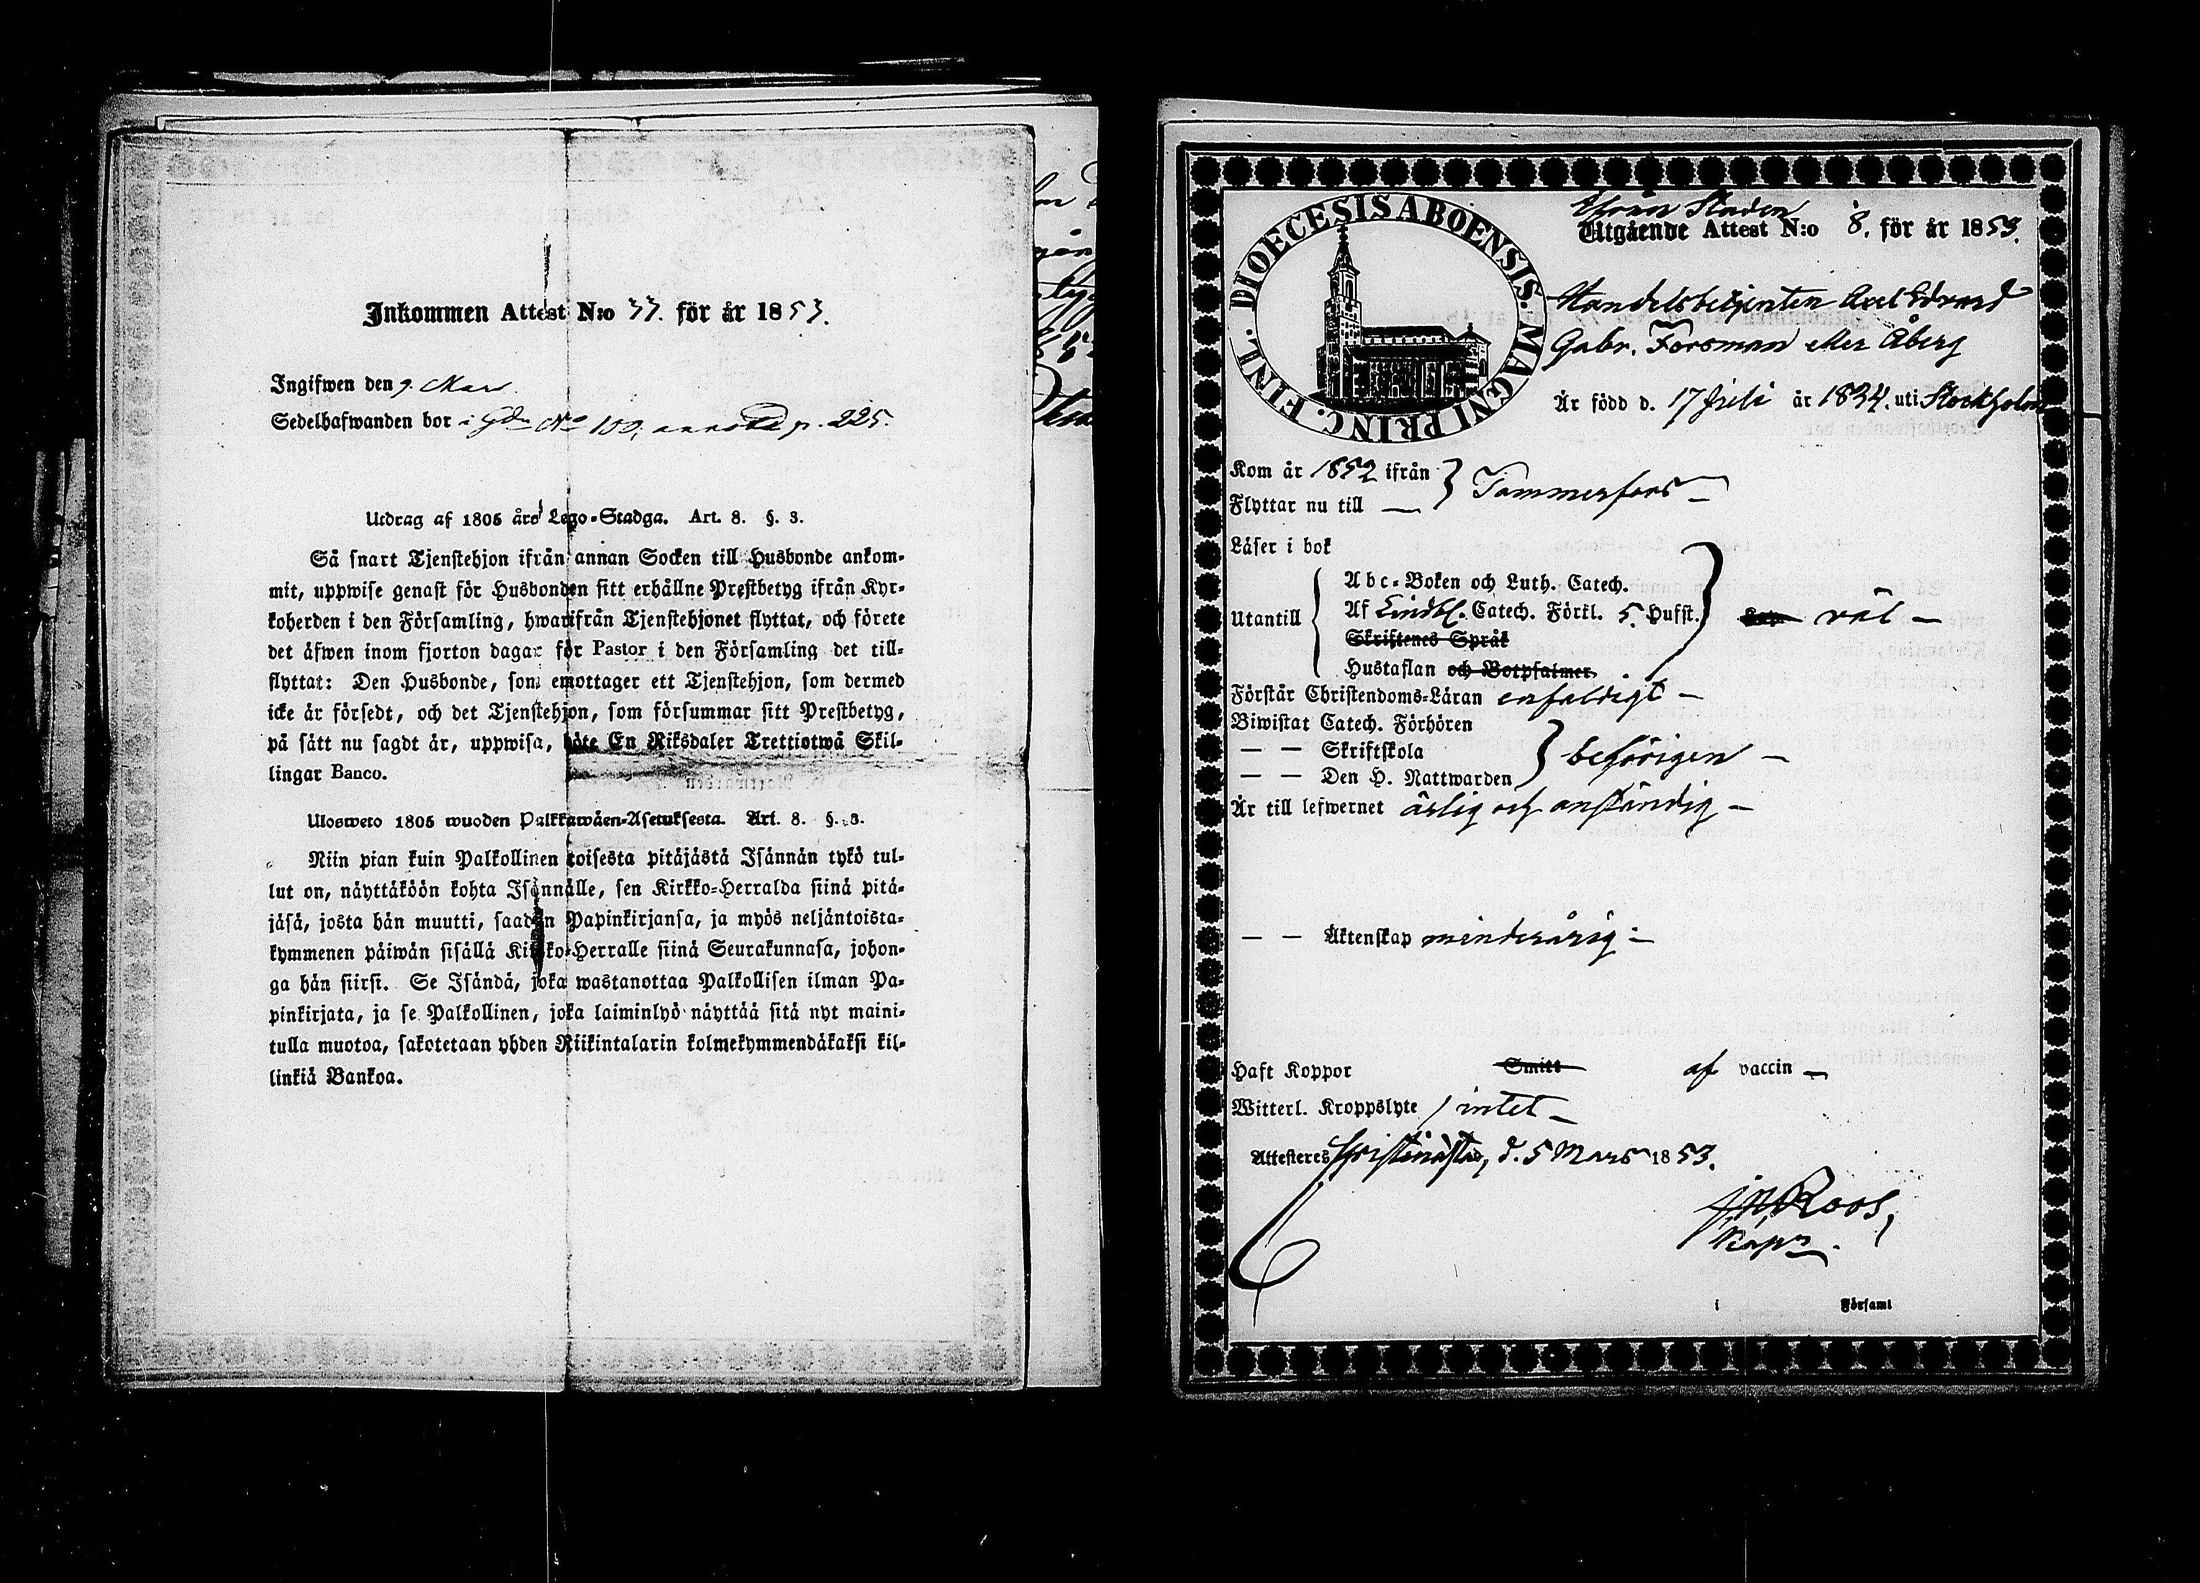 Inkommen Attest N:o 33. för år 1853.
Ingifwen den 9. Mars
Sedelhafwanden bor i Gdn No 100, p. 225.
Utdrag af 1805 års Lego-Stadga. Art. 8. §. 3.
Så snart Tjenstehjon ifrån annan Socken till Husbonde ankom-
mit, uppwise genast för Husbonden sitt erhållne Prestbetyg ifrån Kyr-
koherden i den Församling, hwarifrån Tjenstehjonet flyttat, och förete
det äfwen inom fjorton dagar för Pastor i den Församling det till-
flyttat: Den Husbonde, som emottager ett Tjenstehjon, som dermed
icke är försedt, och det Tjenstehjon, som försummar sitt Prestbetyg,
på sätt nu sagdt är, uppwisa, böte En Riksdaler Trettiotwå Skil-
lingar Banco.
Ulosweto 1805 wuoden Palkkawäen-Asetuksesta. Art. 8. §. 3.
Niin pian kuin Palkollinen toisesta pitäjästä Isännän tykö tul-
lut on, näyttäköön kohta Isännälle, sen Kirkko-Herralda siinä pitä-
jäsä, josta hän muutti, saadun Papinkirjansa, ja myös neljäntoista-
kymmenen päiwän sisällä Kirkko-Herralle siinä Seurakunnasa, johon-
ga hän siirsi. Se Isändä, joka wastanottaa Palkollisen ilman Pa-
pinkirjata, ja se Palkollinen, joka laiminlyö näyttää sitä nyt maini-
tulla muotoa, sakotetaan yhden Riikintalarin kolmekymmendäkaksi kil-
linkiä Bankoa.
DIOECESIS ABOENSIS. MAGNI PRINC. FINL.
ifrån Staden
Utgående Attest N:o 8. för år 1853.
Handelsbetjenten Axel Edvard
Gabr. Forsman eller Åberg
Är född d. 17 Juli år 1834. uti Stockholm
Kom år 1852 ifrån
Flyttar nu till — } Tammerfors —
Läser i bok
Utantill { Abc-Boken och Luth. Catech.
Af Lindbl. Catech. Förkl. 5. Hufst. } väl —
Skriftenes Språk
Hustaflan och Botpsalmer.
Förstår Christendoms-Läran enfaldigt —
Biwistat Catech. Förhören
— — Skriftskola } behörigen —
— — Den H. Nattwarden
Är till lefwernet ärlig och anständig —
— — Äktenskap minderårig —
Haft Koppor Smitt af vaccin —
Witterl. Kroppslyte / intet —
Attesteres Christinæstad, d. 5 Mars 1853.
J. N. Roos,
Kapn.
i Församl